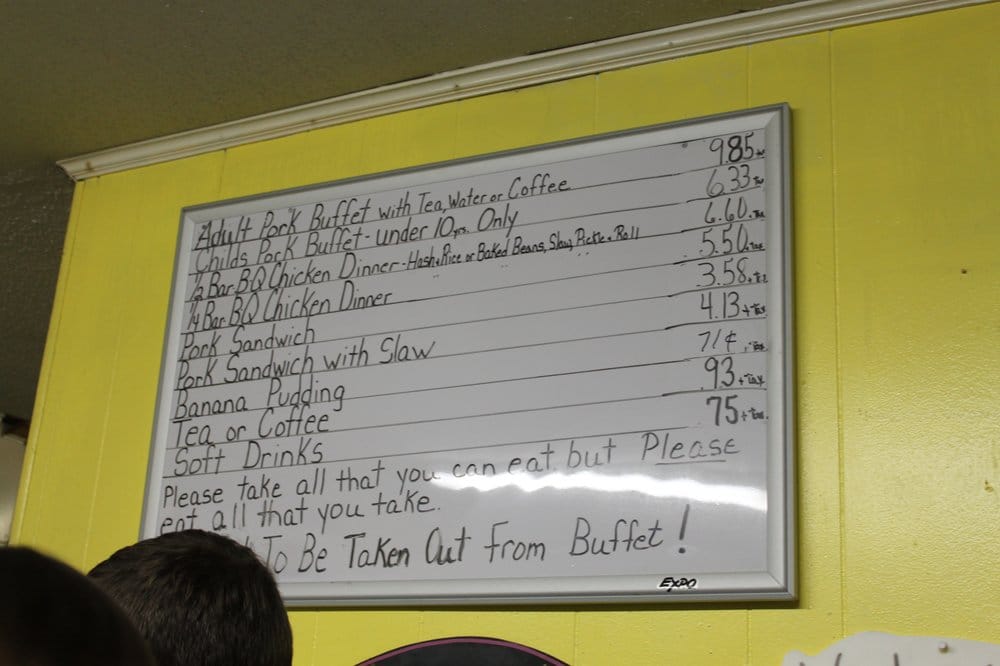 Adult Pork Buffet with Tea, Water or Coffee 9.85 + tax
Childs Pork Buffet - under 10 yrs. Only 6.33 + tax
1/2 Bar-BQ Chicken Dinner - Hash & Rice or Baked Beans, Slaw, Pickle & Roll 6.60 + tax
1/4 Bar-BQ Chicken Dinner 5.50 + tax
Pork Sandwich 3.58 + tax
Pork Sandwich with Slaw 4.13 + tax
Banana Pudding 71¢ + tax
Tea or Coffee .93 + tax
Soft Drinks 75 + tax
Please take all that you can eat but Please
eat all that you take.
To Be Taken Out from Buffet!
EXPO